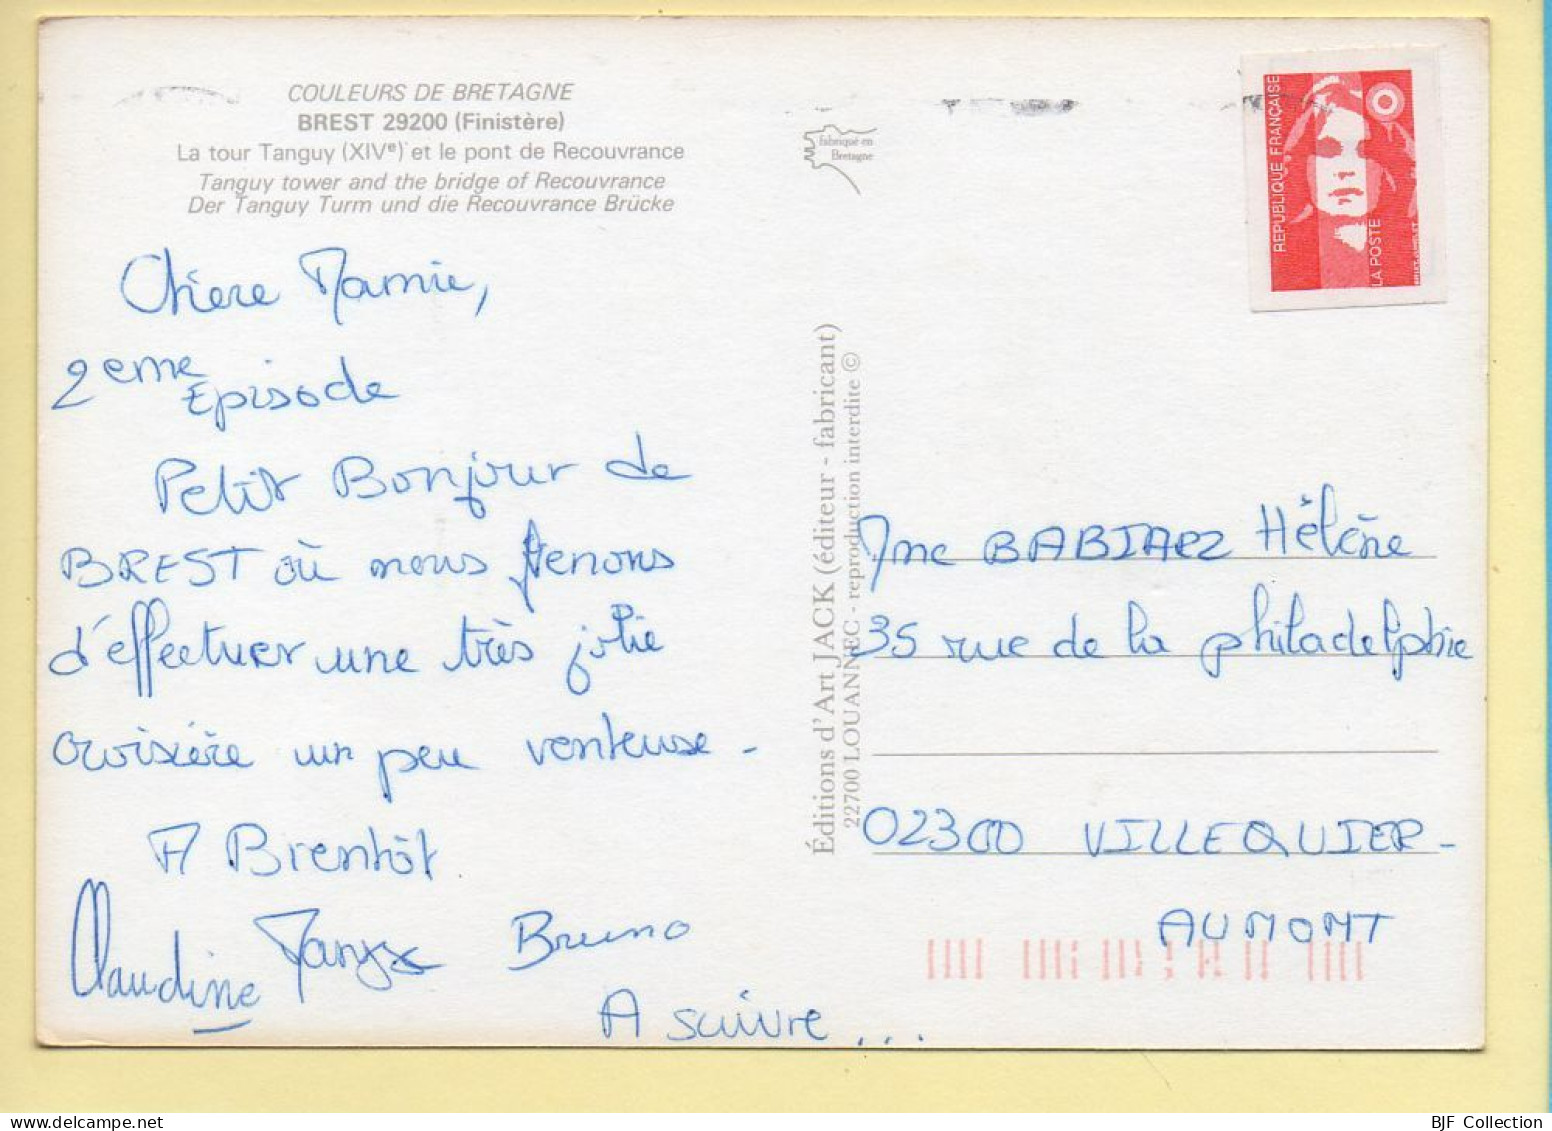 COULEURS DE BRETAGNE
BREST 29200 (Finistère)
La tour Tanguy (XIVe) et le pont de Recouvrance
Tanguy tower and the bridge of Recouvrance
Der Tanguy Turm und die Recouvrance Brücke
Chère Mamie,
2eme
Episode
Petit Bonjour de
BREST où nous venons
d'effectuer une très jolie
croisière un peu venteuse -
A Bientôt
Claudine Bruno
A suivre...
fabriqué en
Bretagne
Éditions d'Art JACK (éditeur - fabricant)
22700 LOUANNEC - reproduction interdite ©
REPUBLIQUE FRANÇAISE
LA POSTE
Mme BABIARZ Hélène
35 rue de la philadelphie
02300 VILLEQUIER -
AUMONT
BJF Collection